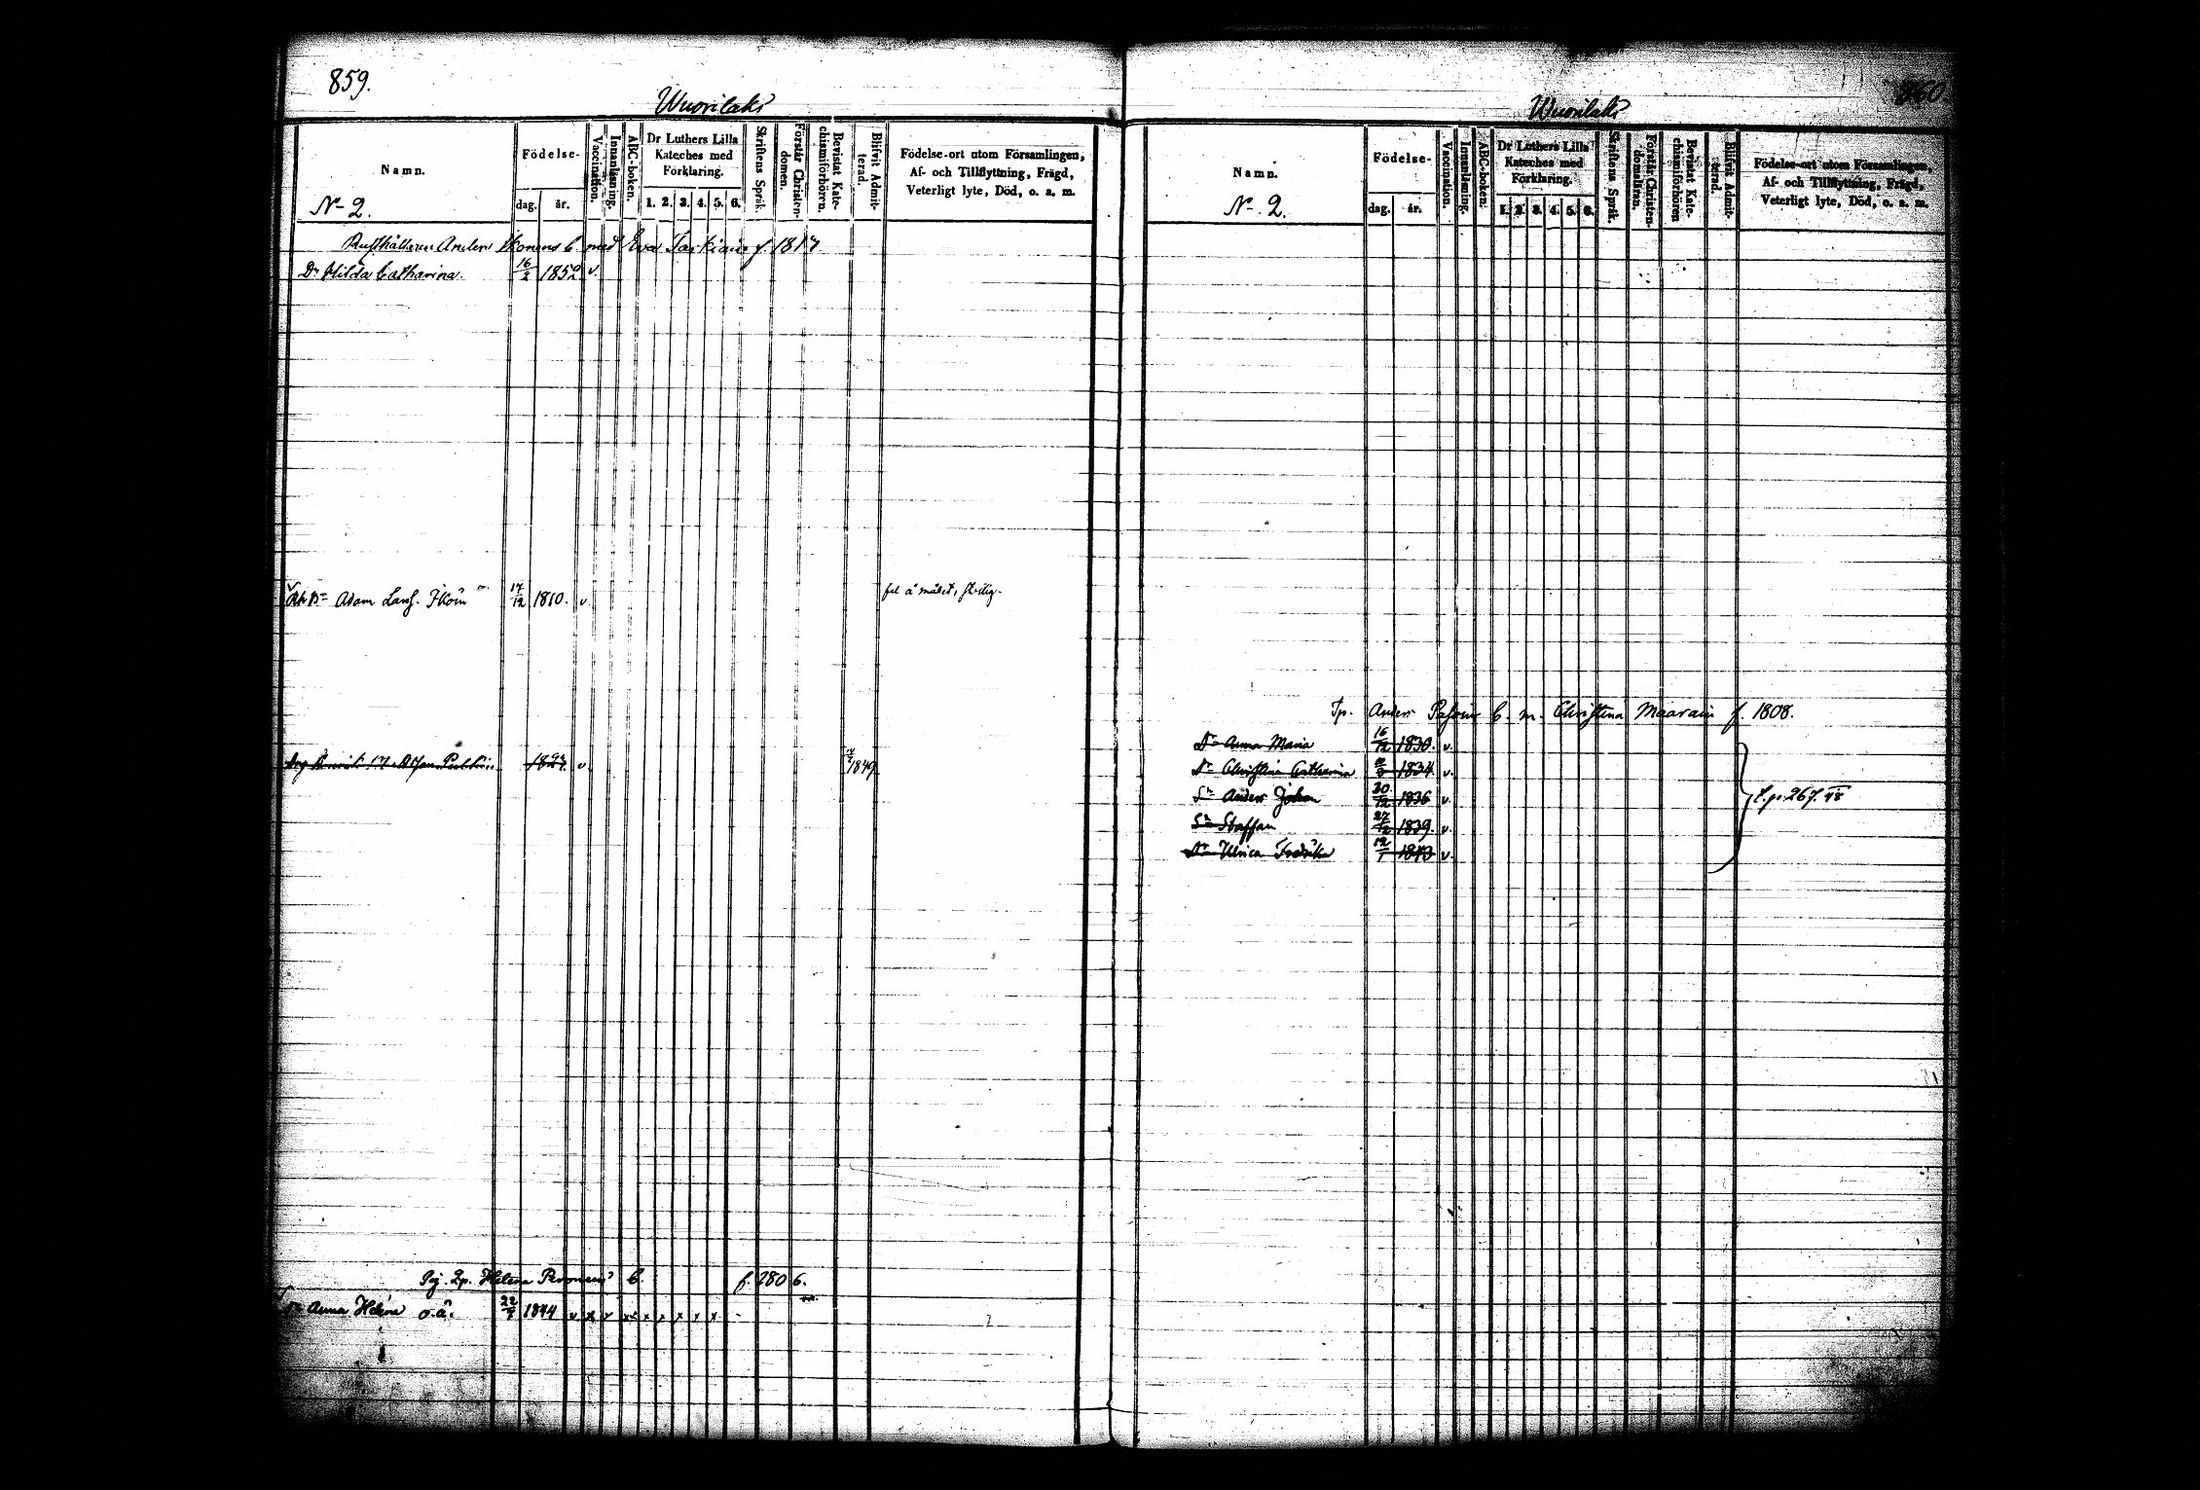 859.
Wuorilaks
Namn.
No 2.
Födelse-
dag. år.
Vaccination.
Innanläsning.
ABC-boken.
Dr Luthers Lilla
Kateches med
Förklaring.
1. 2. 3. 4. 5. 6.
Skriftens Språk.
Förstår Christen-
domen.
Bevistat Kate-
chismiförhören.
Blifvit Admit-
terad.
Födelse-ort utom Församlingen,
Af- och Tillflyttning, Frägd,
Veterligt lyte, Död, o. a. m.
Rusthållaren Anders Ikonens b. med Eva f. 1817
Dr Hilda Catharina. 16/2 1852 v.
Adam 17/12 1810. v.
fel å målet,
v. 1849
Helena b. f. 1806.
Dr Anna Helena o.ä. 22/7 1844 v x v x x x x x x
860.
Wuorilaks
Namn.
No 2.
Födelse-
dag. år.
Vaccination.
Innanläsning.
ABC-boken.
Dr Luthers Lilla
Kateches med
Förklaring.
1. 2. 3. 4. 5. 6.
Skriftens Språk.
Förstår Christen-
domsläran.
Bevistat Kate-
chismiförhören
Blifvit Admit-
terad.
Födelse-ort utom Församlingen,
Af- och Tillflyttning, Frägd,
Veterligt lyte, Död, o. a. m.
Anders b. m. Christina Maarain f. 1808.
Dr Anna Maria 16/12 1830. v.
Dr Christina Catharina 1834. v.
Sn Anders Johan 30/12 1836 v.
Sn Staffan 27/12 1839. v.
Dr Ulrica Fredrika 12/1 1843 v.
t. p. 267.